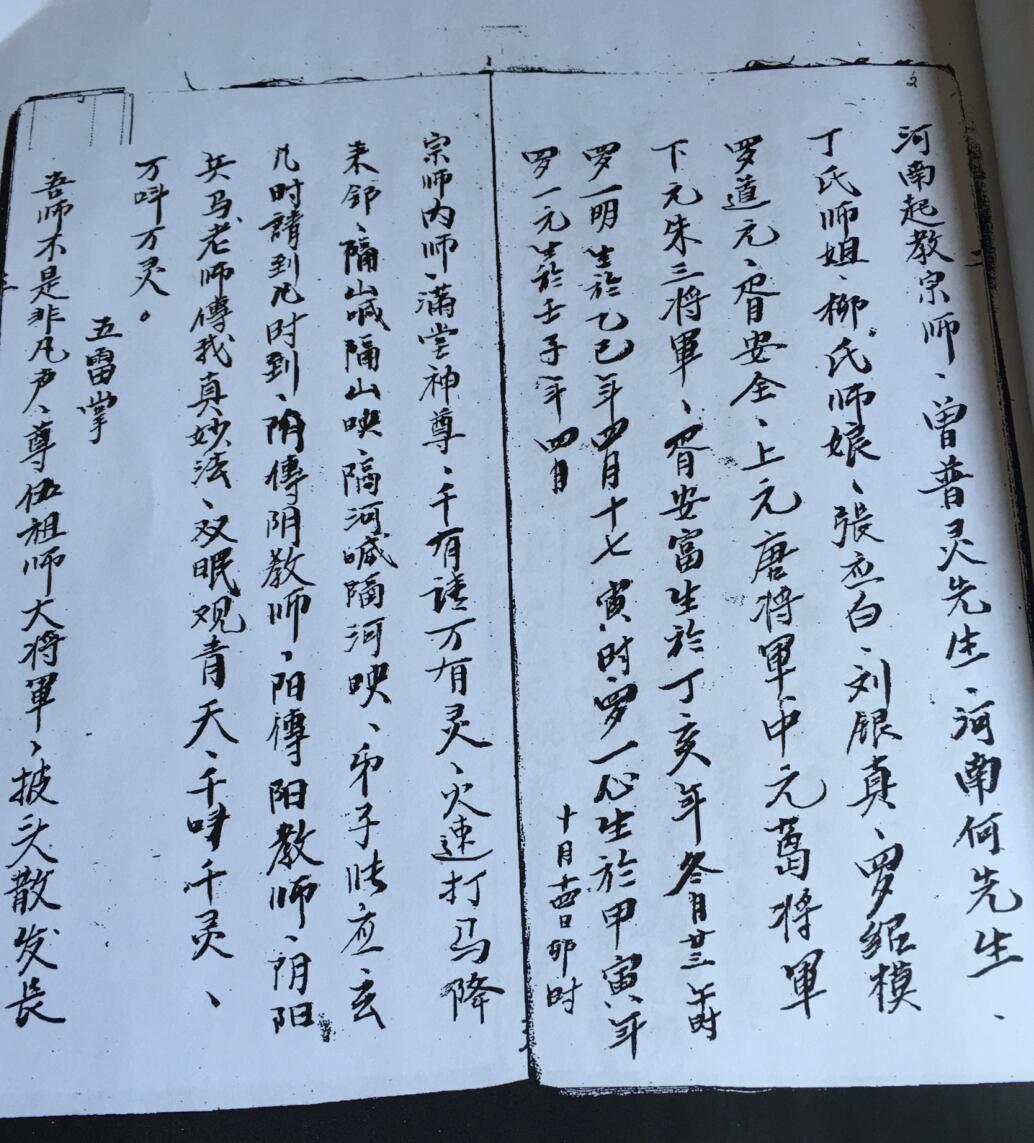 2
河南起教宗师、曾普灵先生、河南何先生、
丁氏师姐、柳氏师娘、張应白、刘银真、罗紹模
罗道元、胥安全、上元唐将軍中元葛将軍
下元朱三将軍、胥安富生於丁亥年冬月廿三午时
罗一明生於乙巳年四月十七寅时、罗一心生於甲寅年
十月十四日卯时
罗一元生於壬子年四月
宗师内师、满堂神尊、千有請万有灵、火速打马降
来邻、隔山喊隔山映、隔河喊隔河映、弟子张应玄
几时請到几时到、阴傳阴教师、阳傳阳教师、阴阳
兵马、老师傳我真妙法、双眼观青天、千呌千灵、
万呌万灵。
五雷掌
吾师不是非凡声、尊伍祖师大将軍、披头散发長